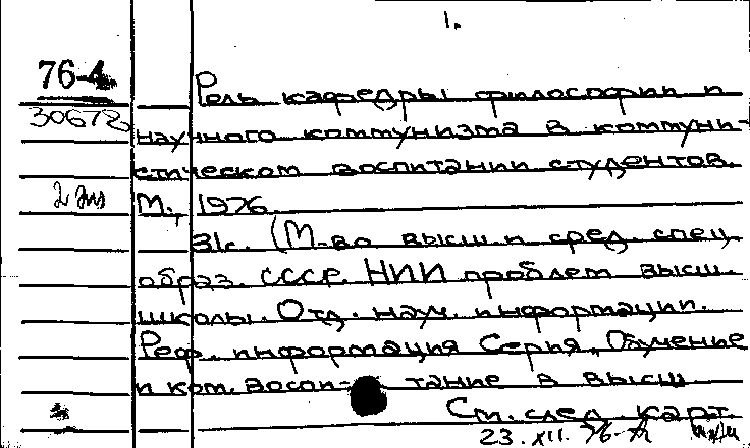 1.
76-4
Роль кафедры философии и
30678
научного коммунизма в коммуни-
стическом воспитании студентов.
2 экз М., 1976.
31с. (М-во высш. и сред. спец.
образ. СССР. НИИ проблем высш.
школы. Отд. науч. информации.
Реф. информация Серия „Обучение
и ком. воспи- тание в высш.
См. след. карт.
23.XII.76